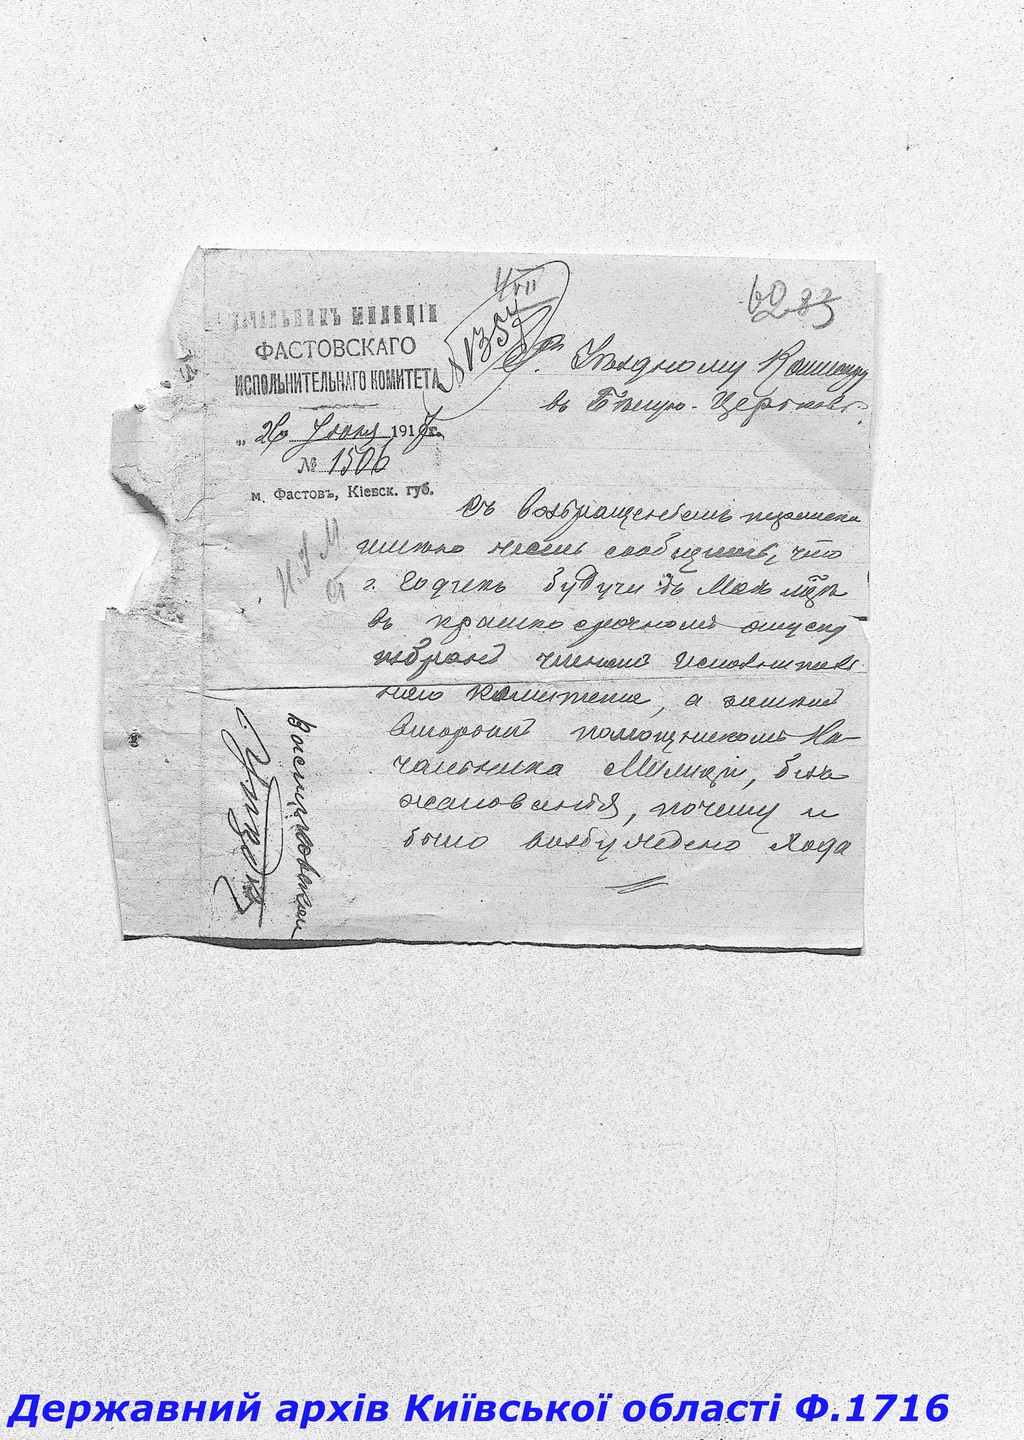 НАЧАЛЬНИКЪ МИЛИЦІИ
ФАСТОВСКАГО
ИСПОЛЬНИТЕЛЬНАГО КОМИТЕТА
„ 26 " Іюня 1917 г.
№ 1506
м. Фастовъ, Кіевск. губ.
Уѣздному
въ Бѣлую-Церковь.
Съ возвращеніемъ переписки
честь сообщить, что
г. будучи въ
въ кратко срочномъ отпуску
избранъ членомъ Исполнитель
наго комитета, а затѣмъ
вторымъ помощникомъ На-
чальника Милиціи, безъ
жалованія, почему и
было возбуждено хода
Державний архів Київської області Ф.1716